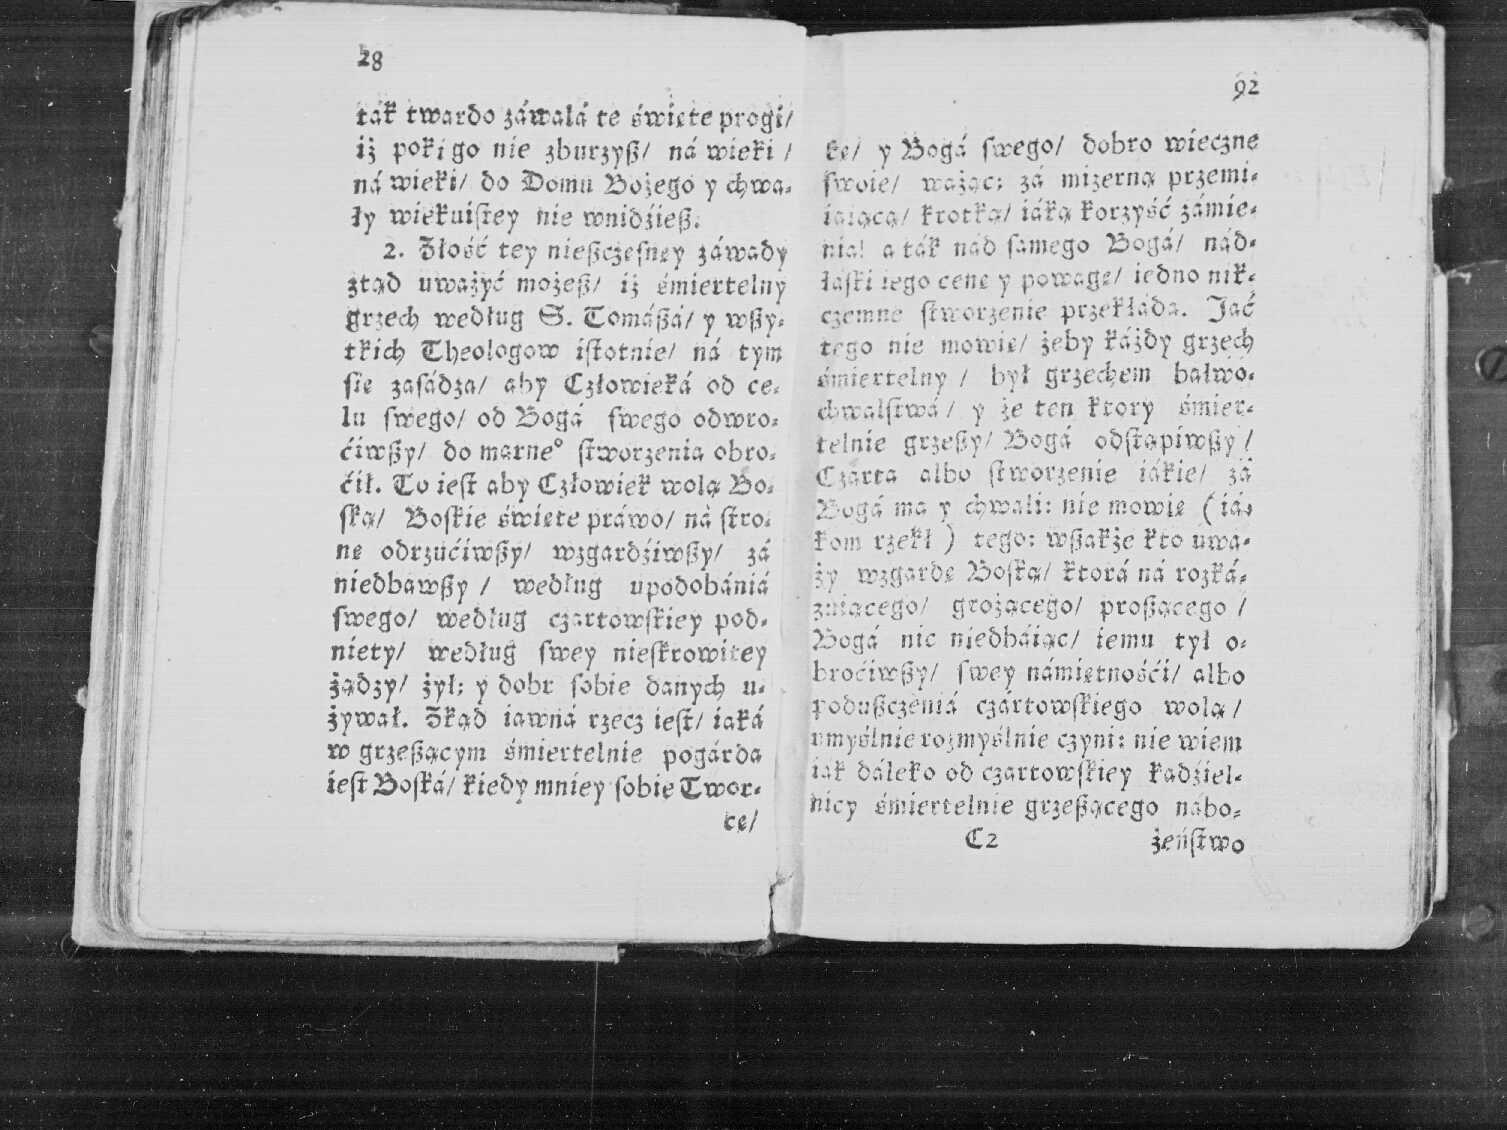 28
ták twardo záwalá te święte progi/
iż poki go nie zburzyß/ ná wieki /
ná wieki/ do Domu Bożego y chwa-
ły wiekuiſtey nie wnidźieß.
2. Złość tey nießczeſney záwady
ztąd uważyć możeß/ iż śmiertelny
grzech według S. Tomáßá/ y wßy-
tkich Theologow iſtotnie/ ná tym
ſie zaſádza/ aby Człowieká od ce-
lu ſwego/ od Bogá ſwego odwro-
ćiwßy/ do marne° ſtworzenia obro-
ćił. To ieſt aby Człowiek wolą Bo-
ſką/ Boſkie święte práwo/ ná ſtro-
nę odrzućiwßy/ wzgardźiwßy/ zá
niedbawßy / według upodobániá
ſwego/ według czartowſkiey pod-
niety/ według ſwey nieſkrowitey
żądzy/ żył; y dobr ſobie danych u-
żywał. Zkąd iawná rzecz ieſt/ iaká
w grzeßącym śmiertelnie pogárda
ieſt Boſká/ kiedy mniey ſobie Twor-
cę/
92
kę/ y Bogá ſwego/ dobro wieczne
ſwoie/ ważąc; zá mizerną przemi-
iaiącą/ krotką/ iáką korzyść zámie-
nia! a ták nád ſamego Bogá/ nád-
łaſki iego cenę y powagę/ iedno nik-
czemne ſtworzenie przekłáda. Jać
tego nie mowię/ żeby káżdy grzech
śmiertelny / był grzechem bałwo-
chwalſtwá / y że ten ktory śmier-
telnie grzeßy/ Bogá odſtąpiwßy /
Czarta albo ſtworzenie iákie/ zá
Bogá ma y chwali: nie mowię ( iá-
kom rzekł ) tego: wßakże kto uwa-
ży wzgardę Boſką/ ktorá ná rozká-
zuiącego/ grożącego/ proßącego /
Bogá nic niedbáiąc/ iemu tył o-
broćiwßy/ ſwey námiętnośći/ albo
podußczeniá czártowſkiego wolą /
umyślnie rozmyślnie czyni: nie wiem
iak dáleko od czartowſkiey kądźiel-
nicy śmiertelnie grzeßącego nábo-
C2
żeńſtwo